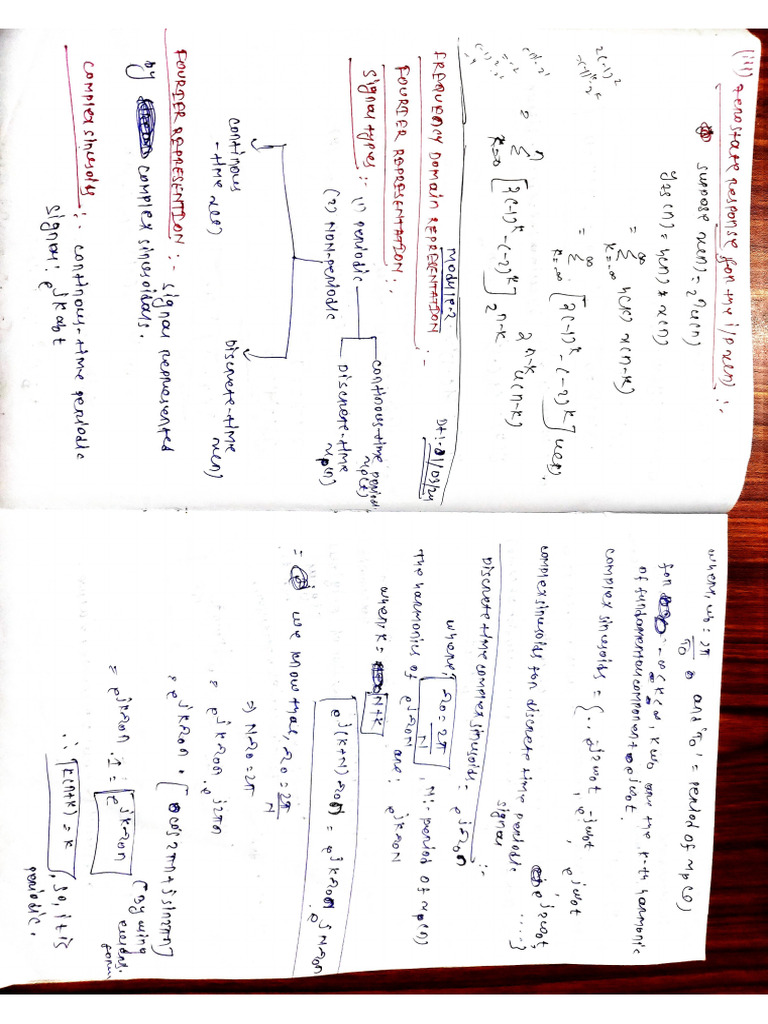 (iii) zero state response for the i/p x(n) :-
suppose x(n) = 2ⁿu(n)
yzs(n) = h(n) * x(n)
= Σ_{k=-∞}^{∞} h(k) x(n-k)
= Σ_{k=-∞}^{∞} [2(-1)^k - (-2)^k] u(k). 2^{n-k} u(n-k)
= Σ_{k=0}^{n} [2(-1)^k - (-2)^k] 2^{n-k}
Module-2
Dt:-01/03/24
FREQUENCY DOMAIN REPRESENTATION :-
FOURIER REPRESENTATION :-
Signal types :- (1) periodic
continuous-time periodic xp(t)
Discrete-time xp(n)
(2) Non-periodic
continous-time x(t)
Discrete-time x(n)
FOURIER REPRESENTION :- signal represented
by complex sinusoidals.
complex sinusoids :- continous-time periodic
signal : e^{jkω0t}
where, ω0 = 2π/T0 and 'T0' = period of xp(t)
for -∞<k<∞, kω0 are the k-th harmonic
of fundamental component e^{jω0t}.
complex sinusoids = {... e^{-j2ω0t}, e^{-jω0t}, e^{jω0t}, e^{j2ω0t}, ....}
complex sinusoids for discrete time periodic
signal
Discrete time complex sinusoids = e^{jΩ0n} :-
where, Ω0 = 2π/N, N: period of xp(n)
The harmonics of e^{jΩ0N} are: e^{jkΩ0N}
when, k = N+k
e^{j(k+N)Ω0n} = e^{jkΩ0n} . e^{jNΩ0n}
= we know that, Ω0 = 2π/N
⇒ NΩ0 = 2π
= e^{jkΩ0n} . e^{j2πn}
= e^{jkΩ0n} . [cos2πn + jsin2πn]
(By using
= e^{jkΩ0n} . 1 = e^{jkΩ0n}
∴ k(n+k) = k , so, it is
periodic.